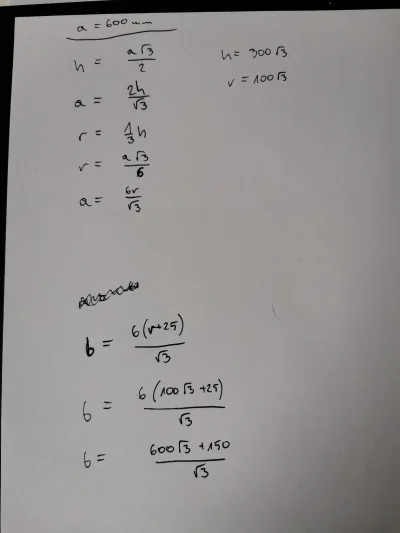 a = 600 mm
h = a√3/2
h = 300√3
a = 2h/√3
r = 100√3
r = 1/3 h
r = a√3/6
a = 6r/√3
b = 6(r+25)/√3
b = 6(100√3 +25)/√3
b = 600√3 +150/√3